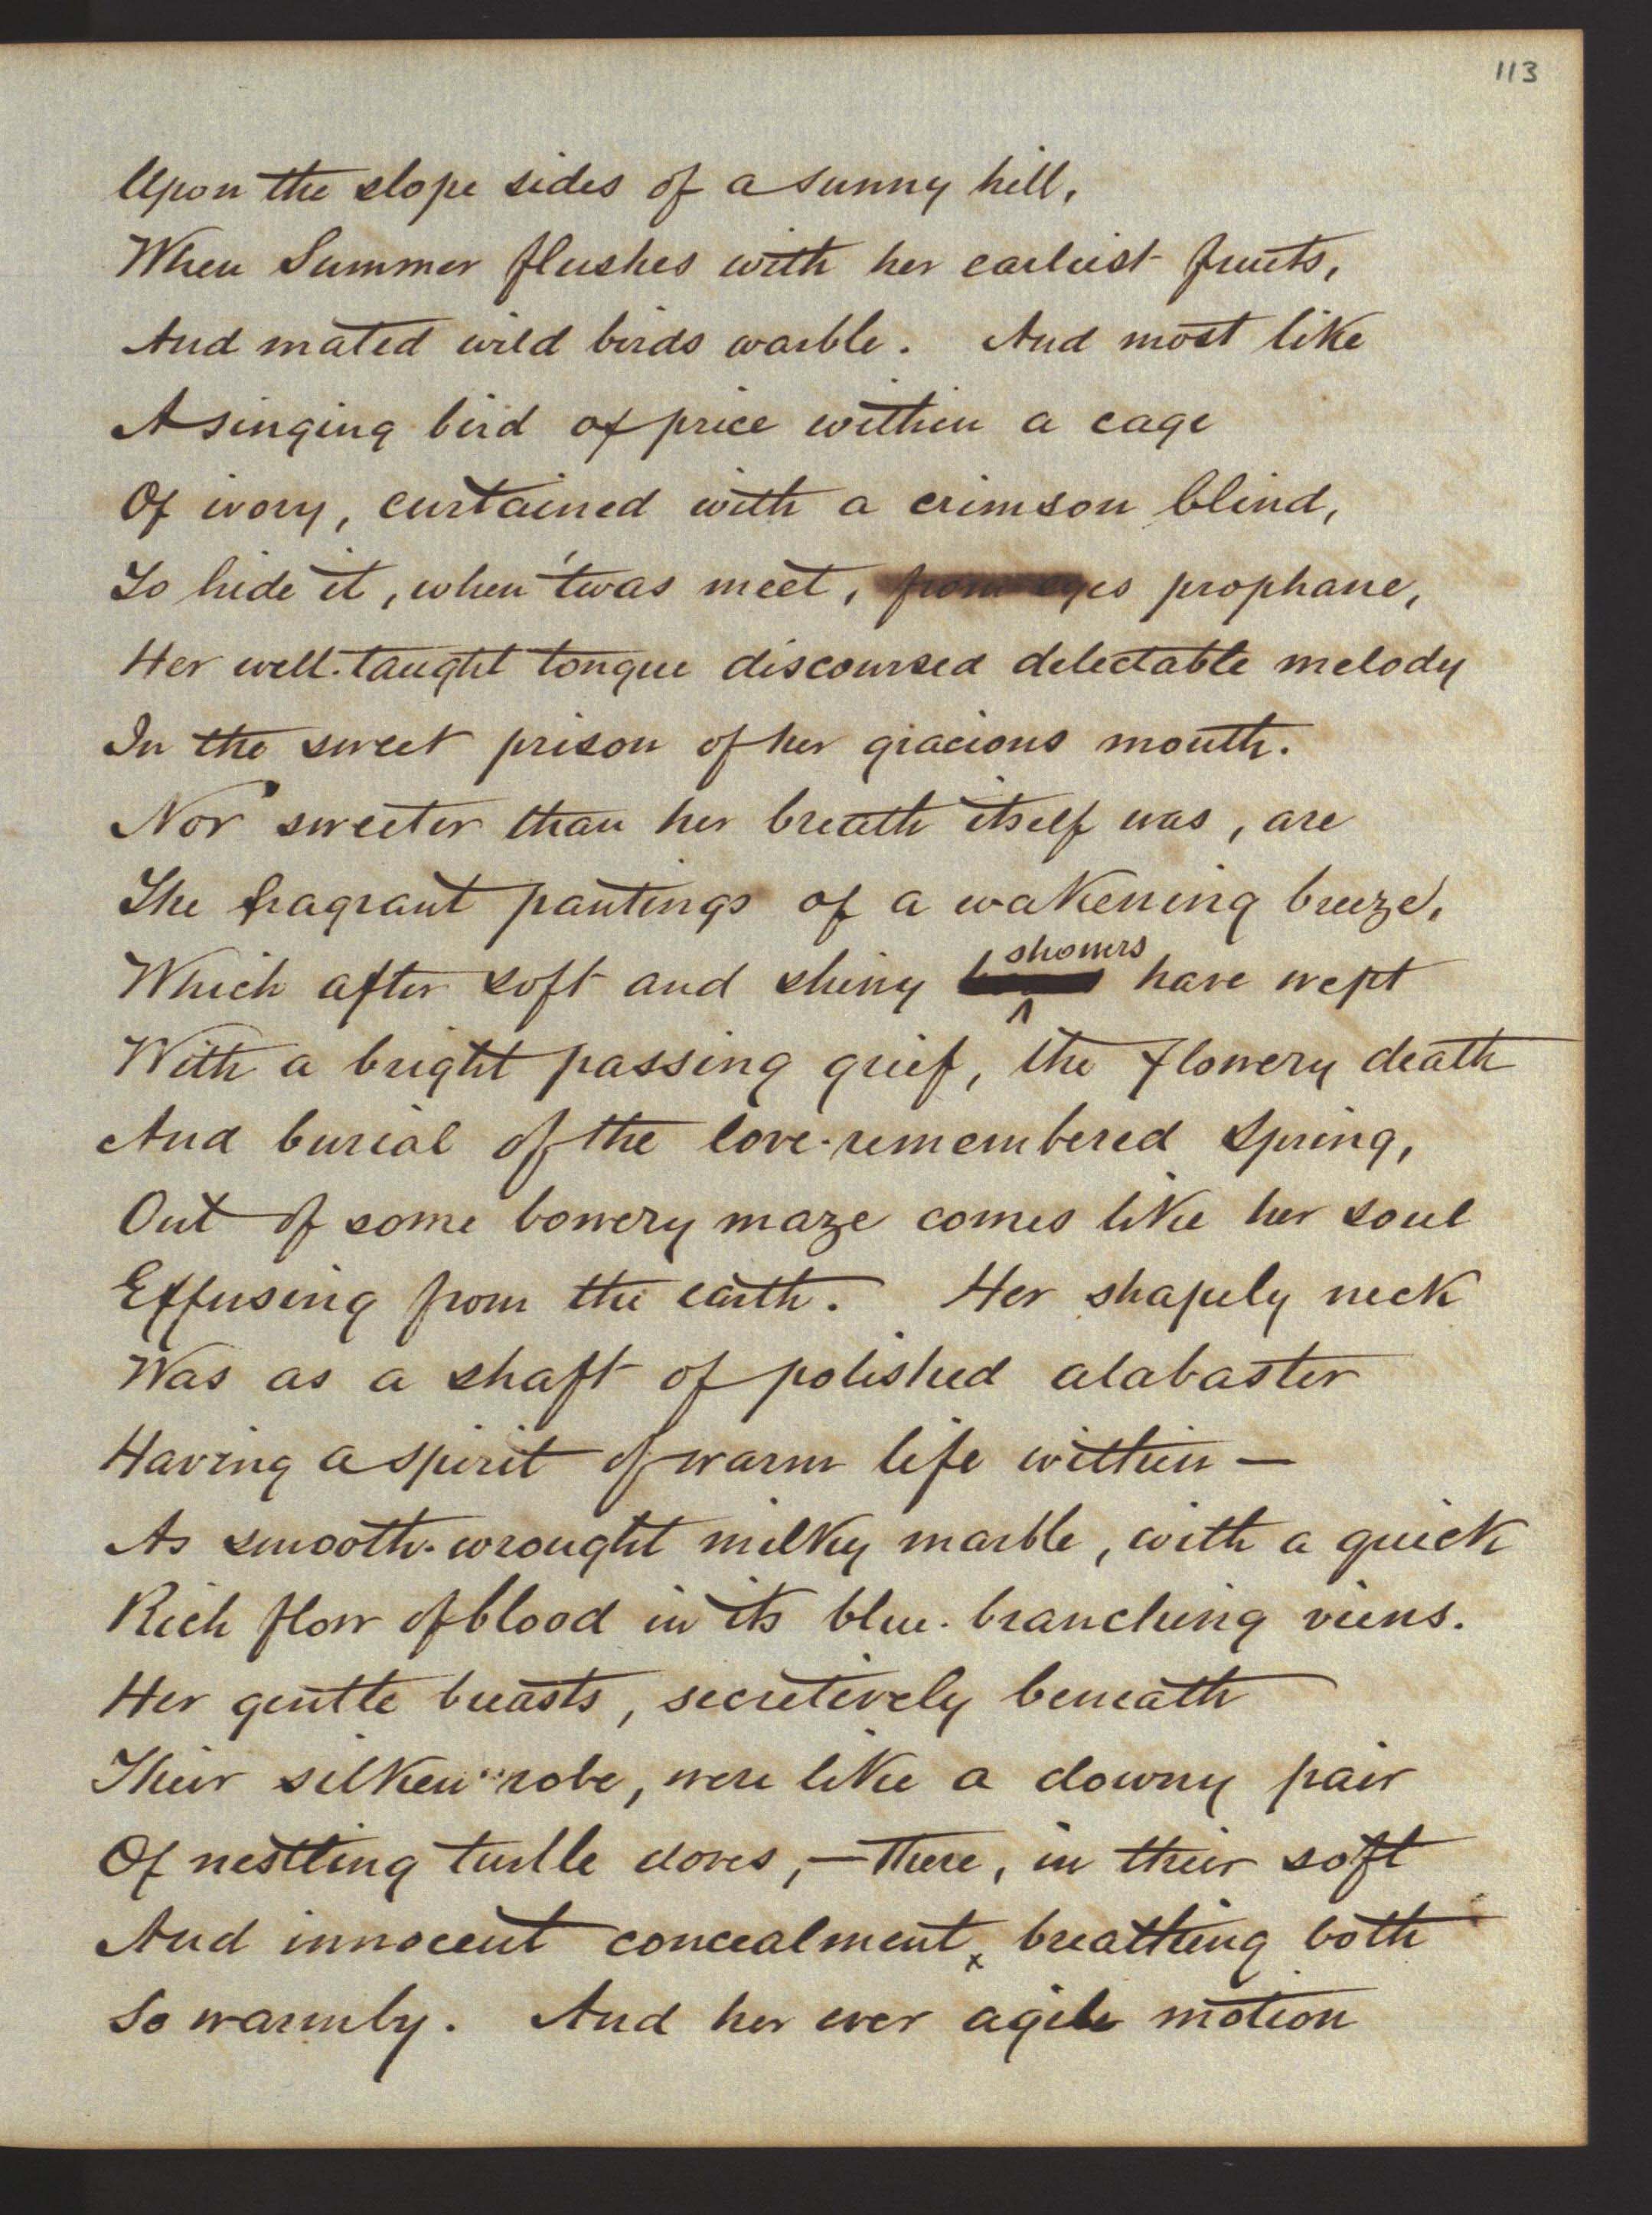 113
Upon the slope sides of a sunny hill,
When Summer flushes with her earliest fruits,
And mated wild birds warble. And most like
A singing bird of price within a cage
Of ivory, curtained with a crimson blind,
To hide it, when 'twas meet, from eyes prophane,
Her well-taught tongue discoursed delectable melody
In the sweet prison of her gracious mouth.
Nor sweeter than her breath itself was, are
The fragrant pantings of a wakening breeze,
Which after soft and shiny showers have wept
With a bright passing grief, the flowery death
And burial of the love-remembered Spring,
Out of some bowery maze comes like her soul
Effusing from the earth. Her shapely neck
Was as a shaft of polished alabaster
Having a spirit of warm life within —
As smooth-wrought milky marble, with a quick
Rich flow of blood in its blue-branching viens.
Her gentle breasts, secretively beneath
Their silken robe, were like a downy pair
Of nestling turtle doves, — There, in their soft
And innocent concealment, breathing both
So warmly. And her ever agile motion